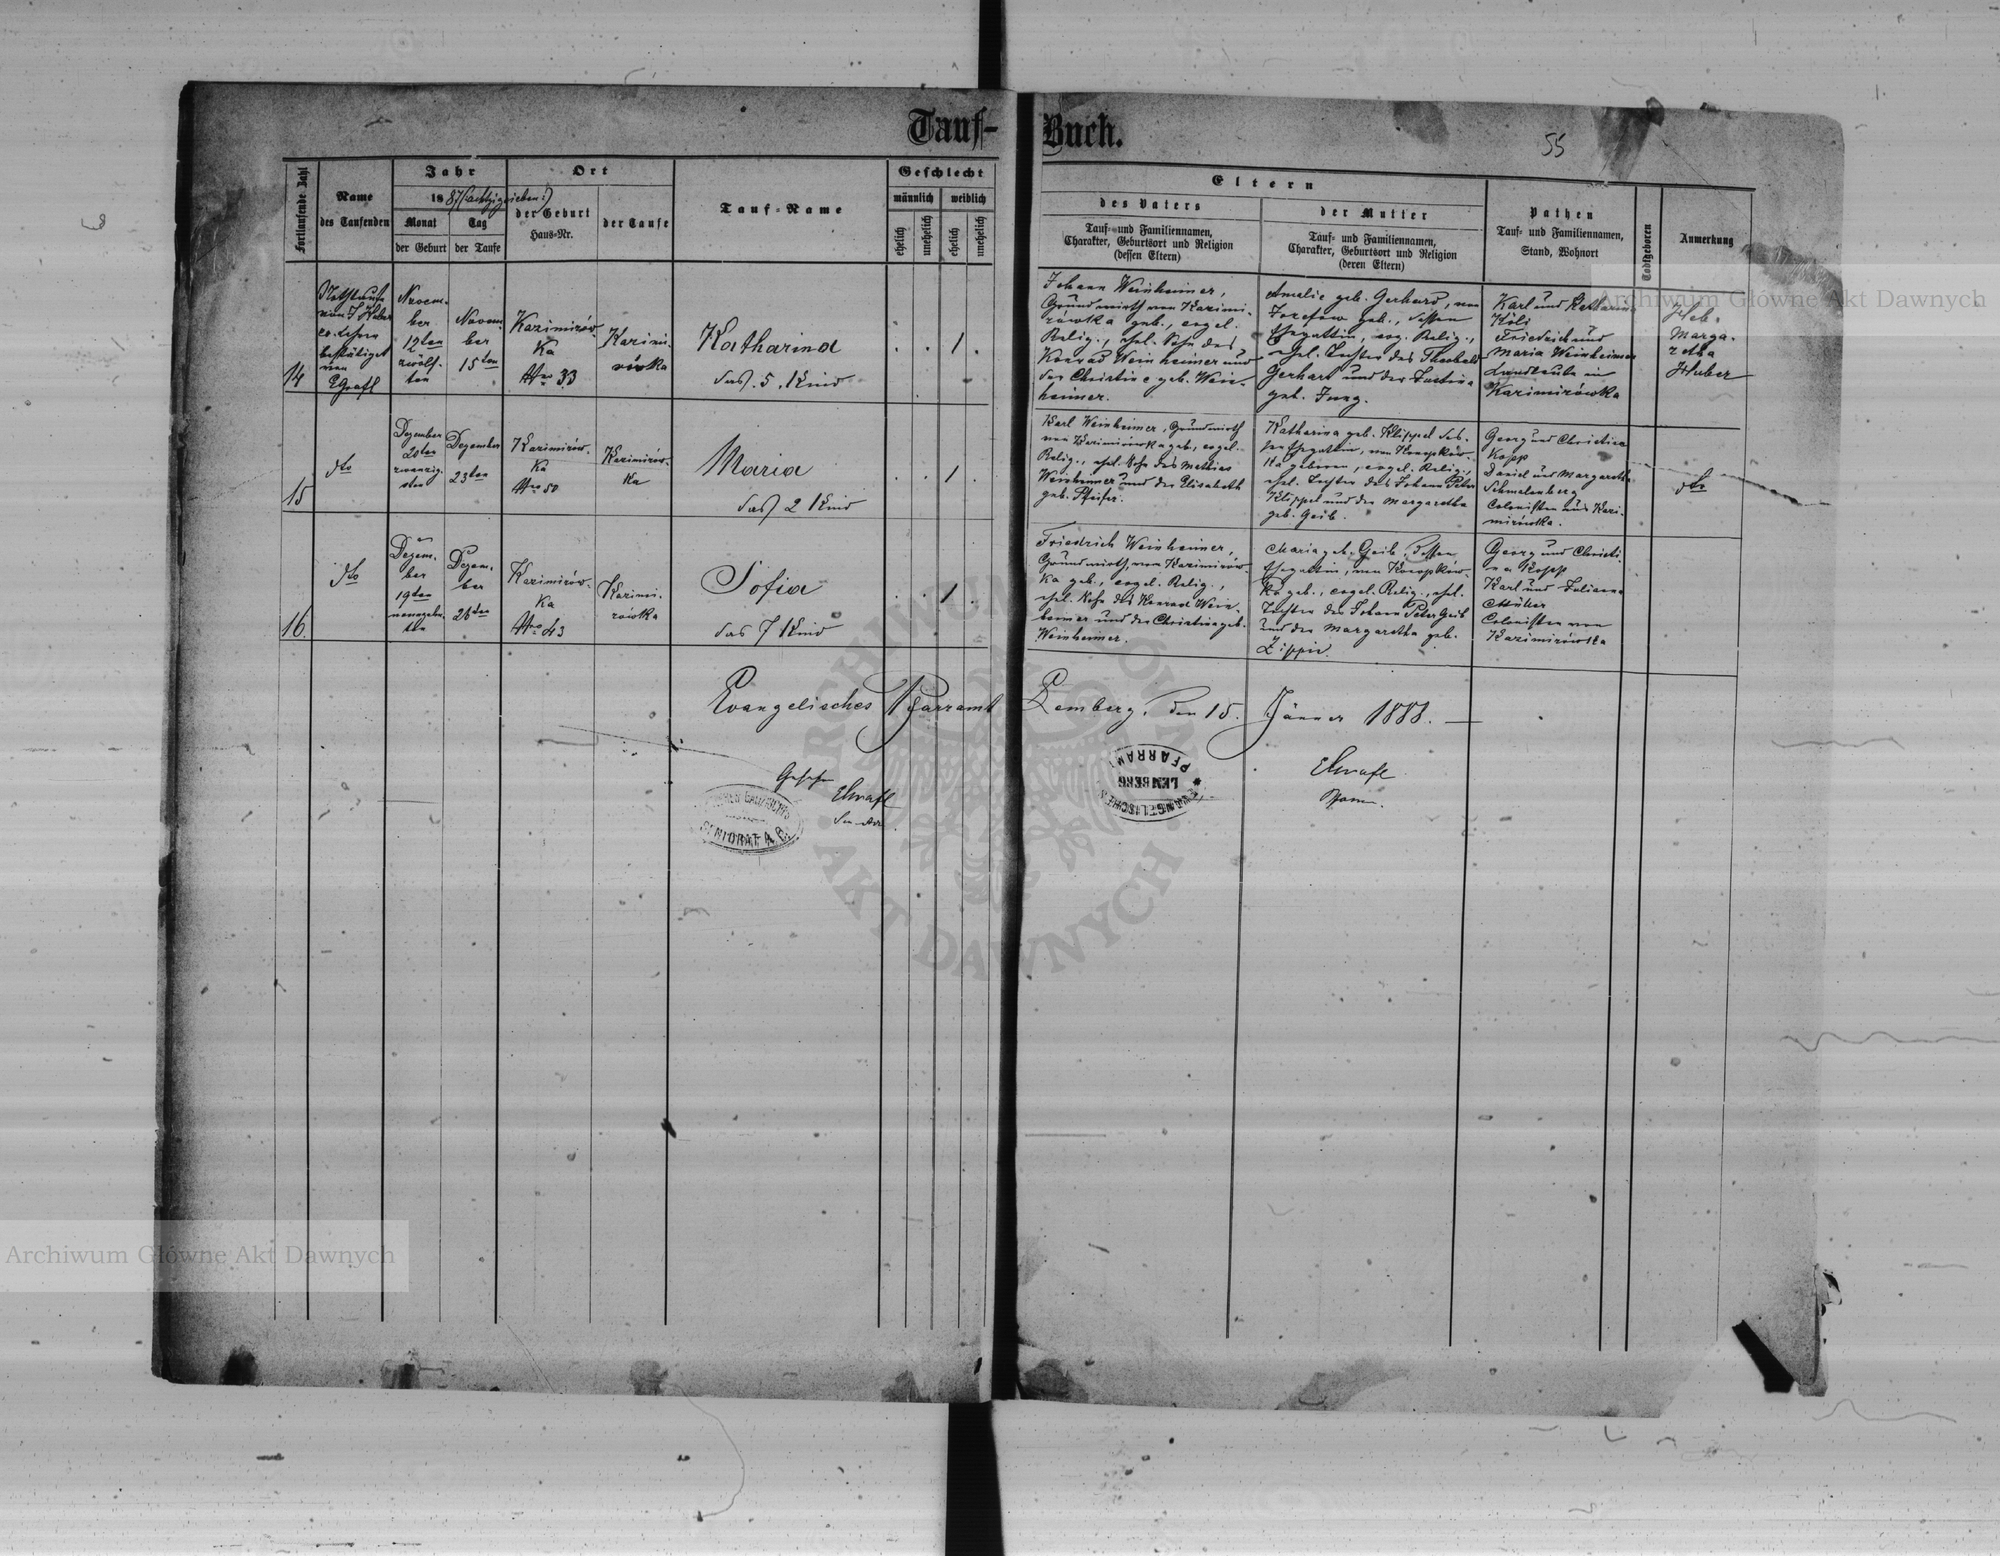 Tauf-Buch.
55
Fortlaufende Zahl
Name
des Taufenden
Jahr
1887 (achtzigsieben)
Monat
Tag
der Geburt
der Taufe
Ort
der Geburt
Haus-Nr.
der Taufe
Tauf-Name
Geschlecht
männlich
weiblich
ehelich
unehelich
ehelich
unehelich
Eltern
des Vaters
Tauf- und Familiennamen,
Charakter, Geburtsort und Religion
(dessen Eltern)
der Mutter
Tauf- und Familiennamen,
Charakter, Geburtsort und Religion
(deren Eltern)
Pathen
Tauf- und Familiennamen,
Stand, Wohnort
Todtgeboren
Anmerkung
14
Nothtaufe
von J Huber
ev. Lehrer
bestätiget
von
Graft
Novem-
ber
12ten
zwölf-
ten
Novem-
ber
15ten
Kazimirów-
ka
Nro 33
Kazimi-
rówka
Katharina
das 5. Kind
1
Johann Weinheimer,
Grundwirth von Kazimi-
rówka geb., evgel.
Relig., ehel. Sohn des
Konrad Weinheimer und
der Christine geb. Wein-
heimer.
Amalie geb. Gerhard, von
Josefow geb., dessen
Ehegattin, evg. Relig.,
ehel. Tochter des Theobald
Gerhart und der Justina
geb. Jung.
Karl und Katharina
Köli
Friedrich und
Maria Weinheimer
Landleute in
Kazimirówka
Heb.
Marga-
retha
Huber
15
dto
Dezember
20ten
zwanzig-
sten
Dezember
23ten
Kazimirów-
ka
Nro 50
Kazimirów-
ka
Maria
das 2 Kind
1
Karl Weinheimer, Grundwirth
von Kazimirówka geb., evgel.
Relig., ehel. Sohn des Mathias
Weinheimer und der Elisabeth
geb. Pfeifer.
Katharina geb. Klippel des-
sen Ehegattin, von Konopków-
ka geboren, evgel. Relig.,
ehel. Tochter des Johann Peter
Klippel und der Margaretha
geb. Geib.
Georg und Christina
Kopp
Daniel und Margaretha
Schmalenberg
Colonisten aus Kazi-
mirówka.
dto
16.
dto
Dezem-
ber
19ten
neunzehn-
ten
Dezem-
ber
26ten
Kazimirów-
ka
Nro 43
Kazimi-
rówka
Sofia
das 7 Kind
1
Friedrich Weinheimer,
Grundwirth, von Kazimirów-
ka geb., evgel. Relig.,
ehel. Sohn des Konrad Wein-
heimer und der Christina geb.
Weinheimer.
Maria geb. Geib, dessen
Ehegattin, von Konopków-
ka geb., evgel. Relig., ehel.
Tochter des Johann Peter Geib
und der Margaretha geb.
Georg und Christi-
na Kopp
Karl und Juliana
Müller
Colonisten von
Kazimirówka
Evangelisches Pfarramt Lemberg, den 15. Jänner 1888.
EVANGELISCHES
LEMBERG
PFARRAMT
SENIORAT A. C.
Archiwum Główne Akt Dawnych
Archiwum Główne Akt Dawnych
ARCHIWUM GŁÓWNE AKT DAWNYCH